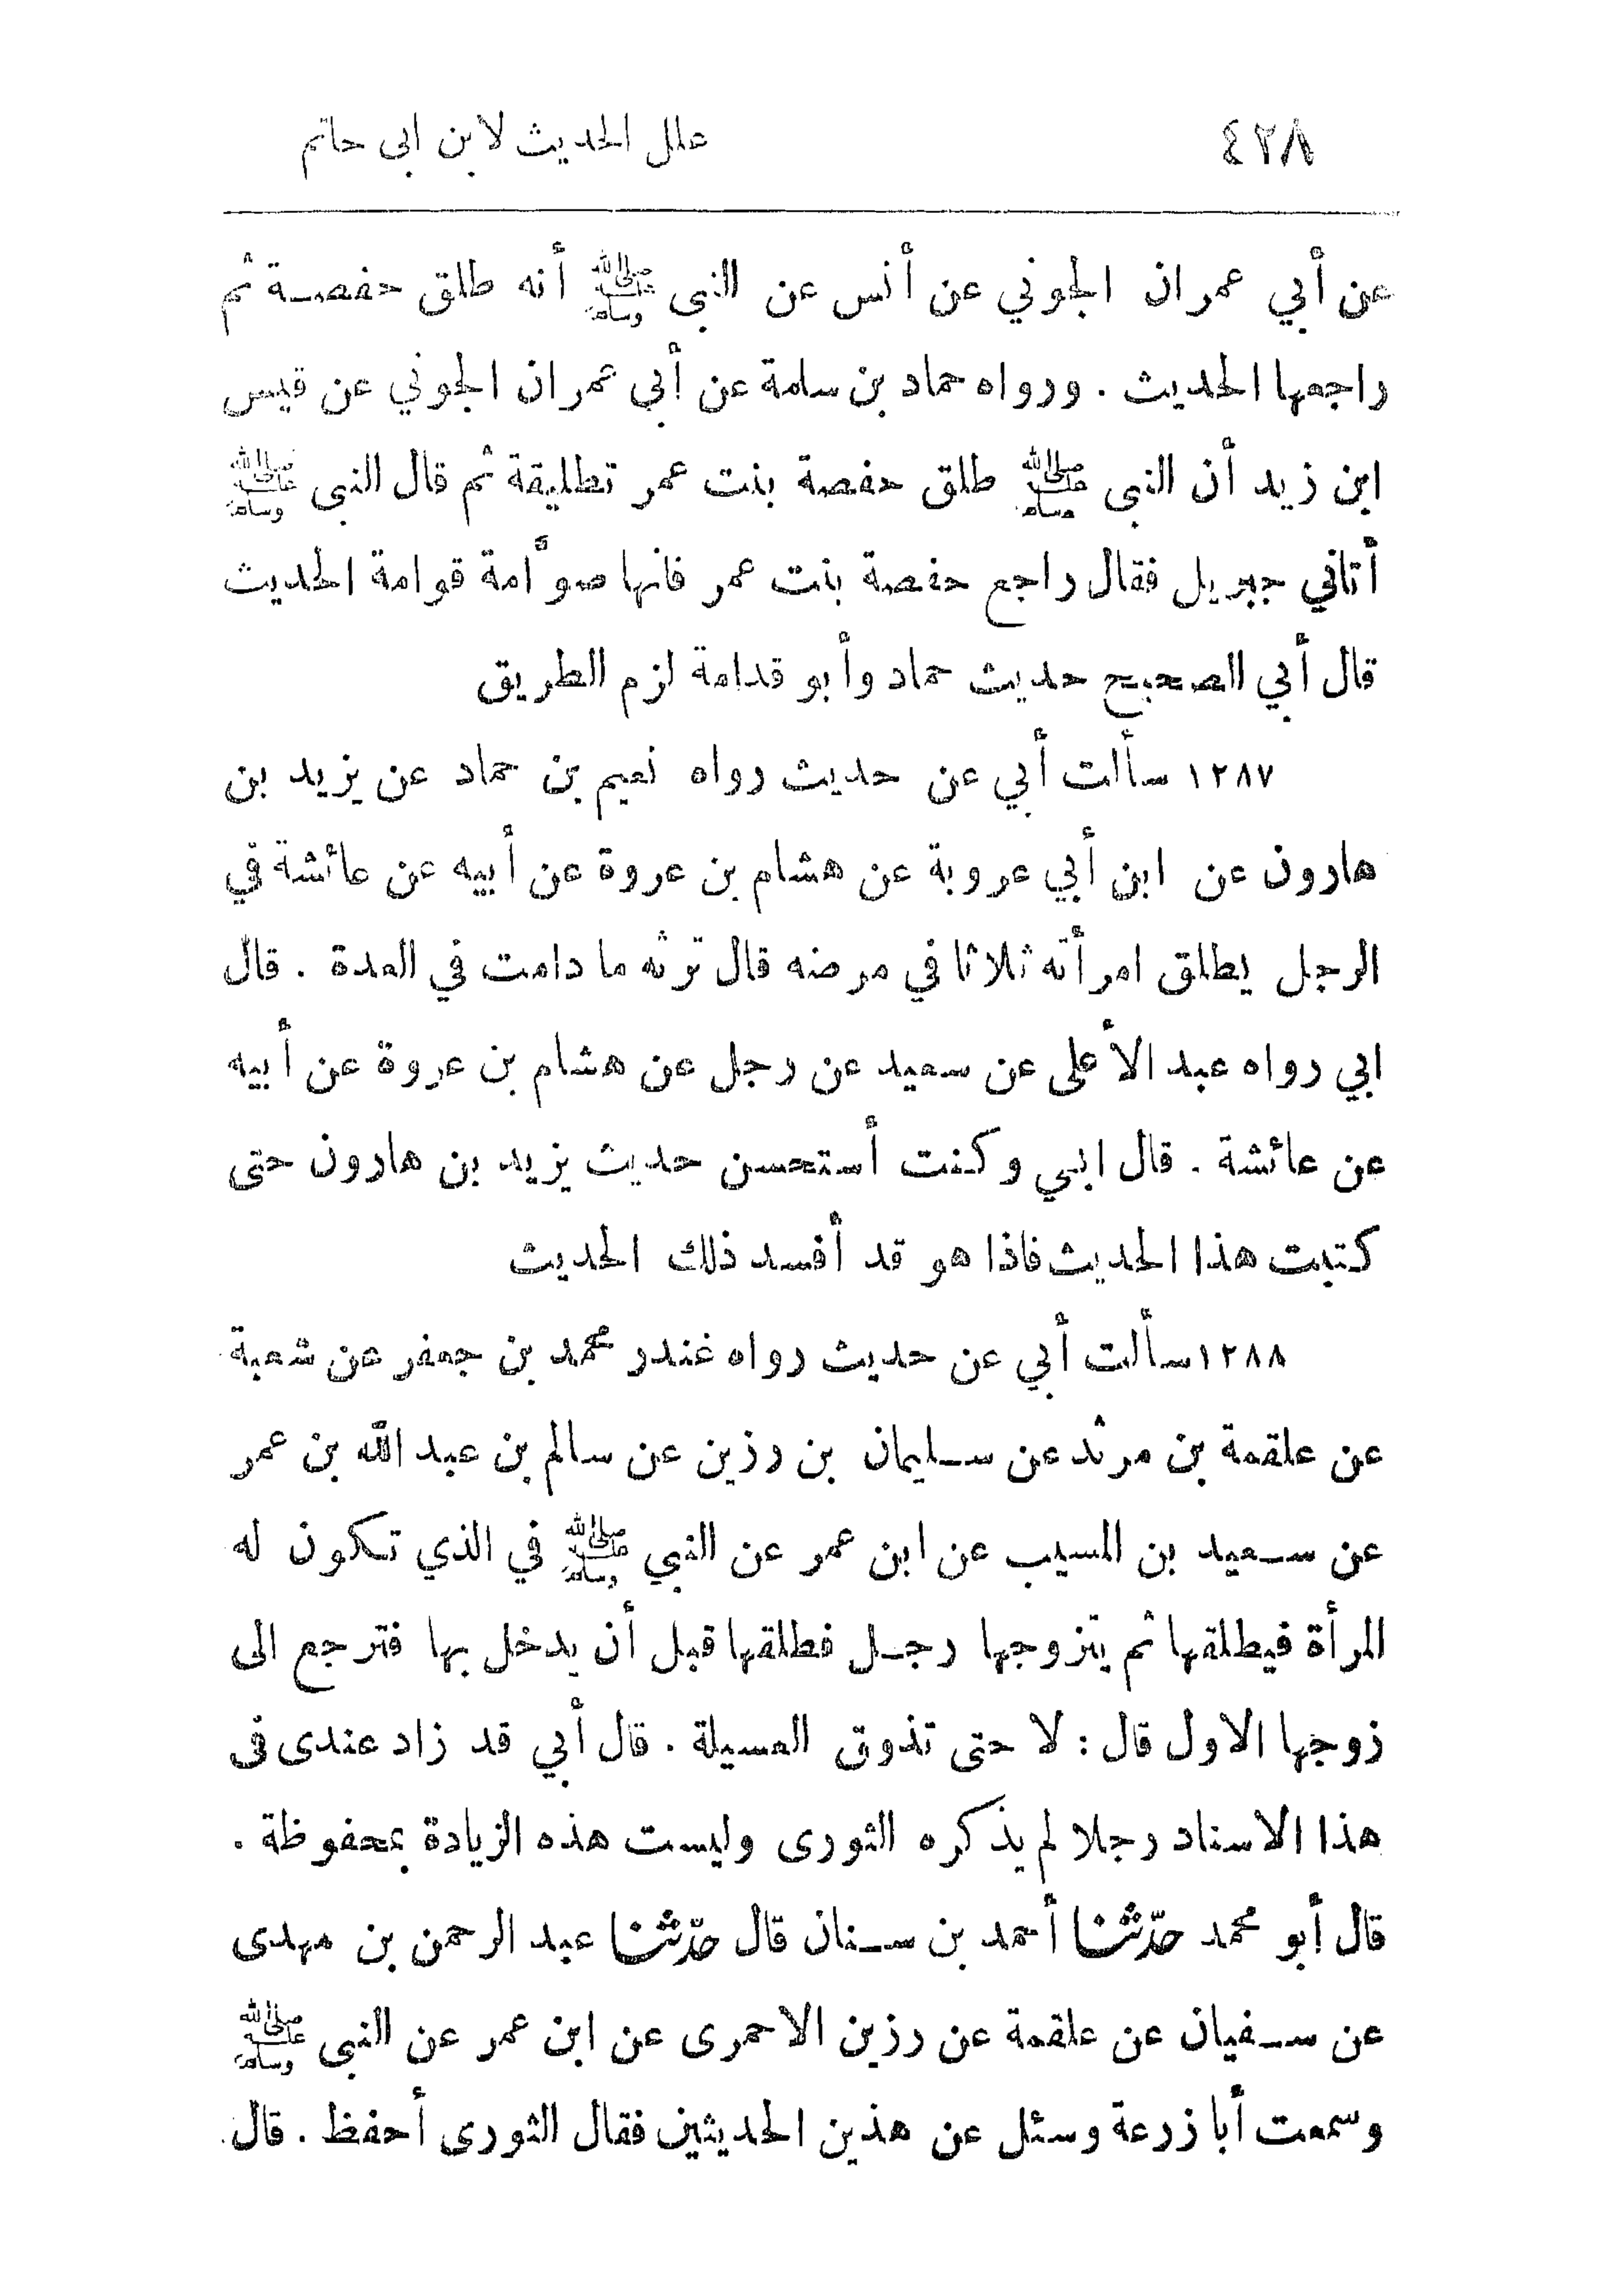 ٤٢٨ علل الحديث لابن ابى حاتم
عن أبي عمران الجوني عن أنس عن النبى ﷺ أنه طلق حفصة ثم
راجعها الحديث . ورواه حماد بن سلمة عن أبي عمران الجوني عن قيس
ابن زيد أن النبى ﷺ طلق حفصة بنت عمر تطليقة ثم قال النبى ﷺ
أتاني جبريل فقال راجع حفصة بنت عمر فانها صوَّامة قوامة الحديث
قال أبي الصحيح حديث حماد وأبو قدامة لزم الطريق
١٢٨٧ سألت أبي عن حديث رواه نعيم بن حماد عن يزيد بن
هارون عن ابن أبي عروبة عن هشام بن عروة عن أبيه عن عائشة في
الرجل يطلق امرأته ثلاثا في مرضه قال ترثه ما دامت في العدة . قال
ابي رواه عبد الأعلى عن سعيد عن رجل عن هشام بن عروة عن أبيه
عن عائشة . قال ابي وكنت أستحسن حديث يزيد بن هارون حتى
كتبت هذا الحديث فاذا هو قد أفسد ذلك الحديث
١٢٨٨ سألت أبي عن حديث رواه غندر محمد بن جعفر عن شعبة
عن علقمة بن مرثد عن سليمان بن رزين عن سالم بن عبد الله بن عمر
عن سعيد بن المسيب عن ابن عمر عن النبي ﷺ في الذي تكون له
المرأة فيطلقها ثم يتزوجها رجل فطلقها قبل أن يدخل بها فترجع الى
زوجها الاول قال : لا حتى تذوق العسيلة . قال أبي قد زاد عندى فى
هذا الاسناد رجلا لم يذكره الثورى وليست هذه الزيادة بمحفوظة .
قال أبو محمد حدّثنا أحمد بن سنان قال حدّثنا عبد الرحمن بن مهدى
عن سفيان عن علقمة عن رزين الاحمرى عن ابن عمر عن النبى ﷺ
وسمعت أبا زرعة وسئل عن هذين الحديثين فقال الثورى أحفظ . قال